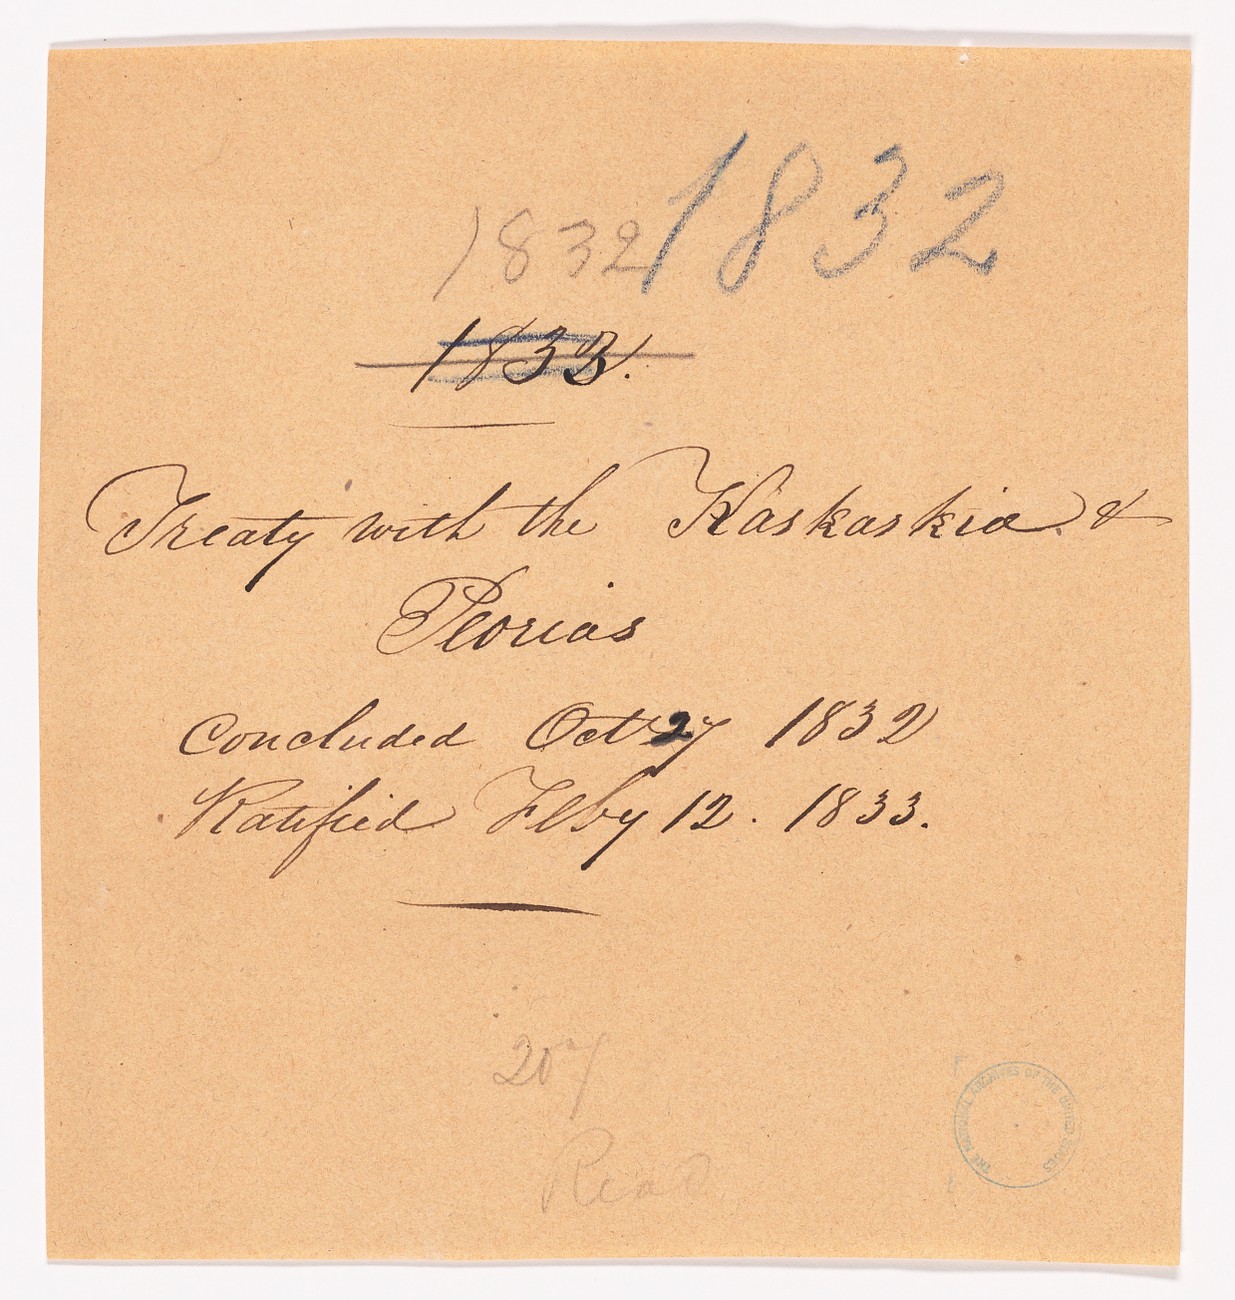 1832
1832
1833.
Treaty with the Kaskaskia &
Peorias
Concluded Oct 27 1832
Ratified Feby 12. 1833.
207
Read
THE NATIONAL ARCHIVES OF THE UNITED STATES